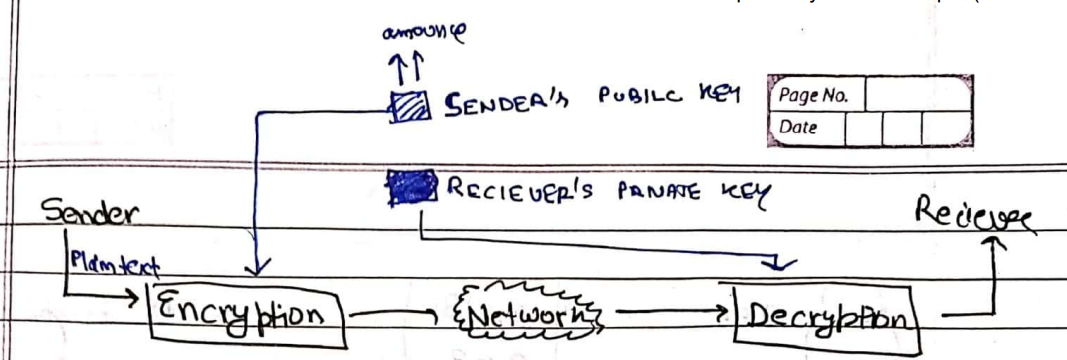 announce
SENDER'S PUBILC KEY
Page No.
Date
RECIEVER'S PRIVATE KEY
Sender
Reciever
Plain text
Encryption
Network
Decryption